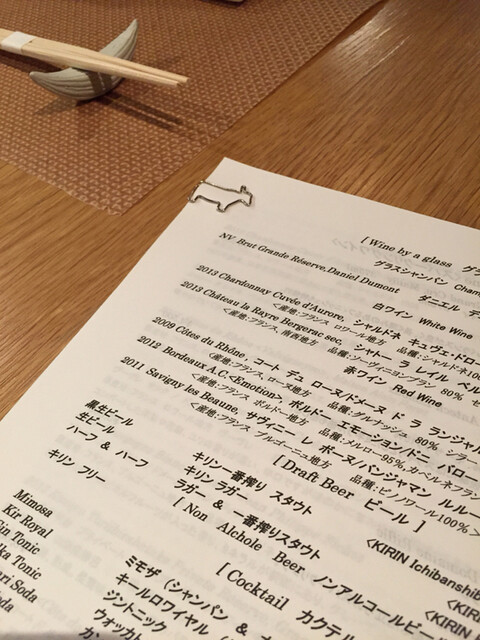 [ Wine by a glass グラ
グラスシャンパン Cham
NV Brut Grande Réserve,Daniel Dumont ダニエル デ
白ワイン White Wine
2013 Chardonnay Cuvée d'Aurore, シャルドネ キュヴェ・ドロー
<産地:フランス ロワール地方 品種:シャルドネ100
2013 Château la Rayre Bergerac sec, シャトー ラ レイル ベル
<産地:フランス、南西地方 品種:ソーヴィニヨンブラン 80% セ
赤ワイン Red Wine
2009 Côtes du Rhône, コート デュ ローヌ/ドメーヌ ド ラ ランジャル
<産地:フランス、ローヌ地方 品種:グルナッシュ 80% シラー
2012 Bordeaux A.C.<Emotion> ボルドー エモーション/ドニ バロー
<産地:フランス ボルドー地方 品種:メルロー95%,カベルネフラン
2011 Savigny les Beaune, サヴィニー レ ボーヌ/パンジャマン ルルー
<産地:フランス ブルゴーニュ地方 品種:ピノノワール100%>
[ Draft Beer ビール ]
黒生ビール キリン一番搾り スタウト <KIRIN Ichibanshib
生ビール キリン ラガー <KIRI
ハーフ & ハーフ ラガー & 一番搾りスタウト <KI
[ Non Alchole Beer ノンアルコールビ
キリン フリー
[ Cocktail カクテル
Mimosa ミモザ (シャンパン &
Kir Royal キールロワイヤル (
in Tonic ジントニック
ka Tonic ウォッカト
ari Soda カン
oda